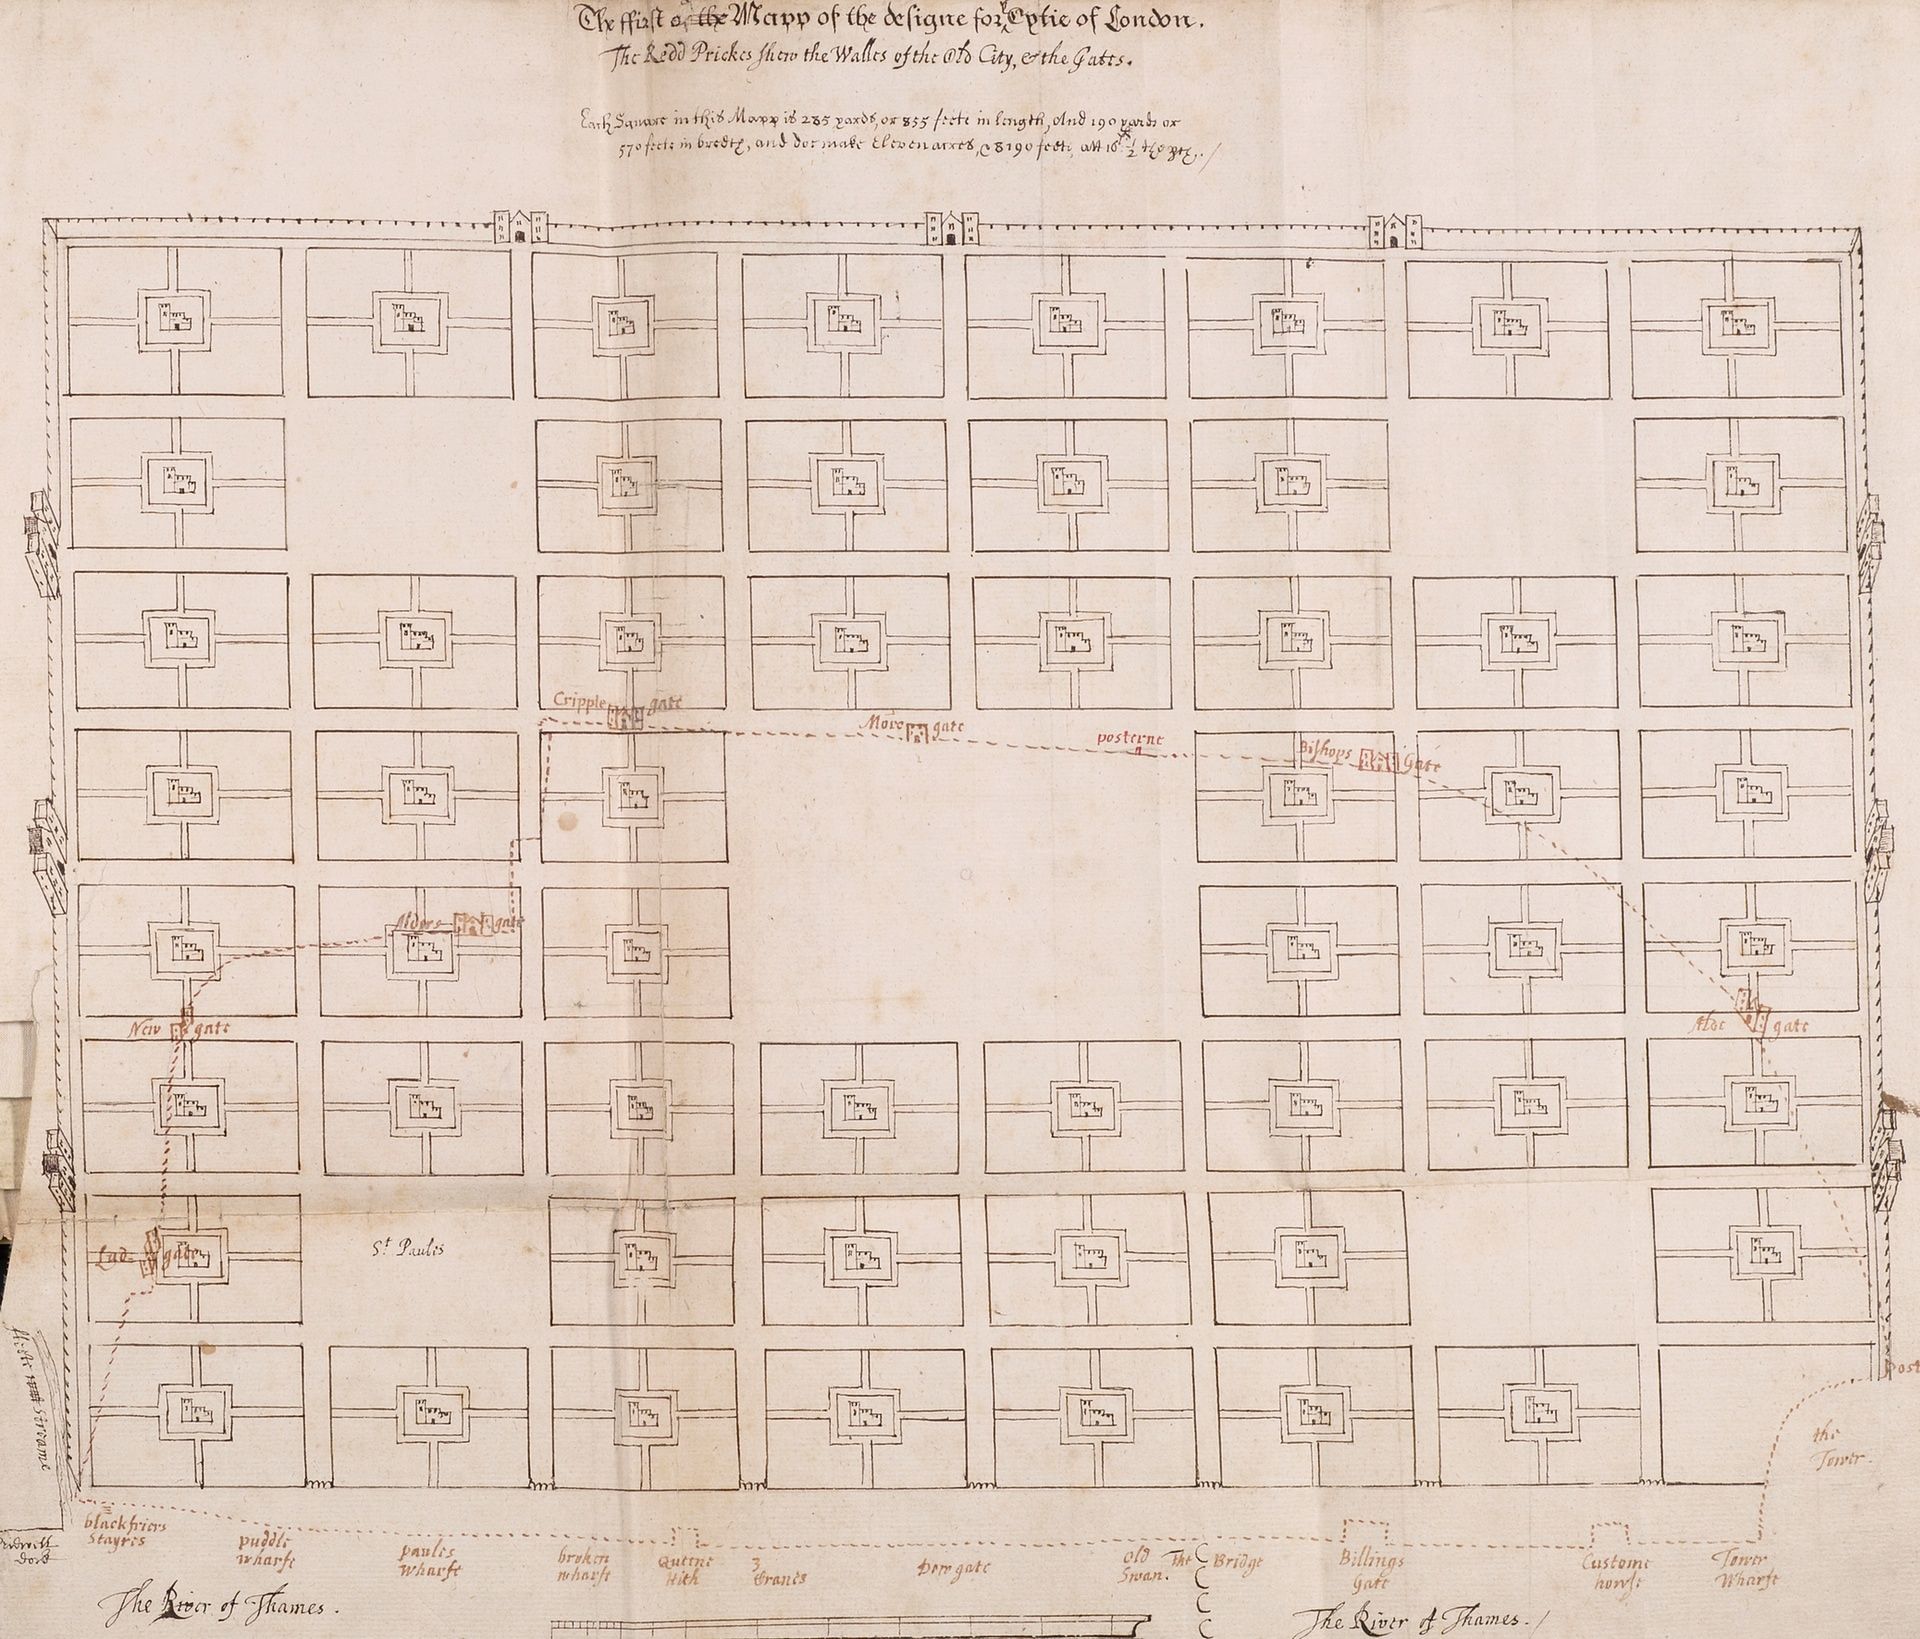 The ffirst of the Mapp of the designe for ye Cytie of London.
The Redd Prickes shew the Walles of the Old City, & the Gates.
Each Square in this Mapp is 285 yards, or 855 feete in length, And 190 yards or
570 feete in bredth, and doe make Eleven acres, & 8190 feete, att 16 1/2
Cripple gate
More gate
posterne
Bishops Gate
Alders gate
New gate
Alde gate
Lud gate
St Paules
post
the
Tower.
Streame
blackfriers
Stayres
puddle
wharfe
paules
wharfe
broken
wharfe
Queene
Hith
3
Cranes
Dowgate
old
Swan.
The Bridge
Billings
Gate
Custome
howse
Tower
Wharfe
Bridwell
dock
The River of Thames.
The River of Thames.